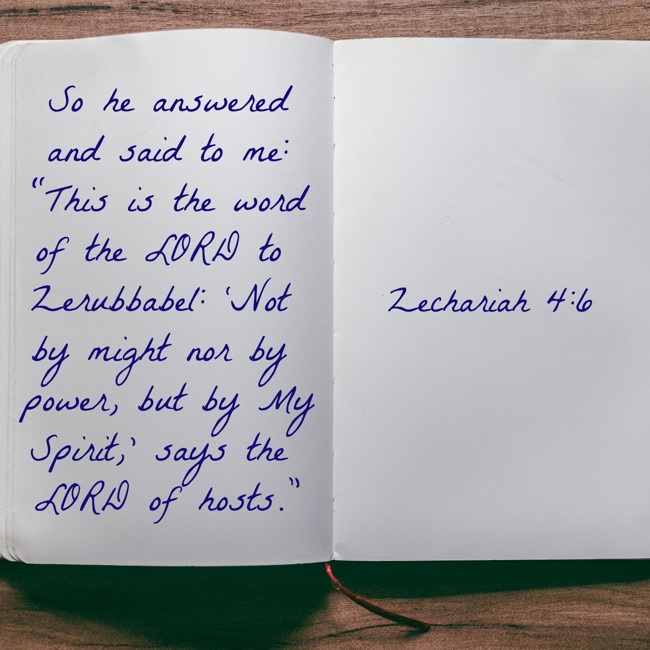 So he answered
and said to me:
"This is the word
of the LORD to
Zerubbabel: 'Not
by might nor by
power, but by My
Spirit,' says the
LORD of hosts."
Zechariah 4:6